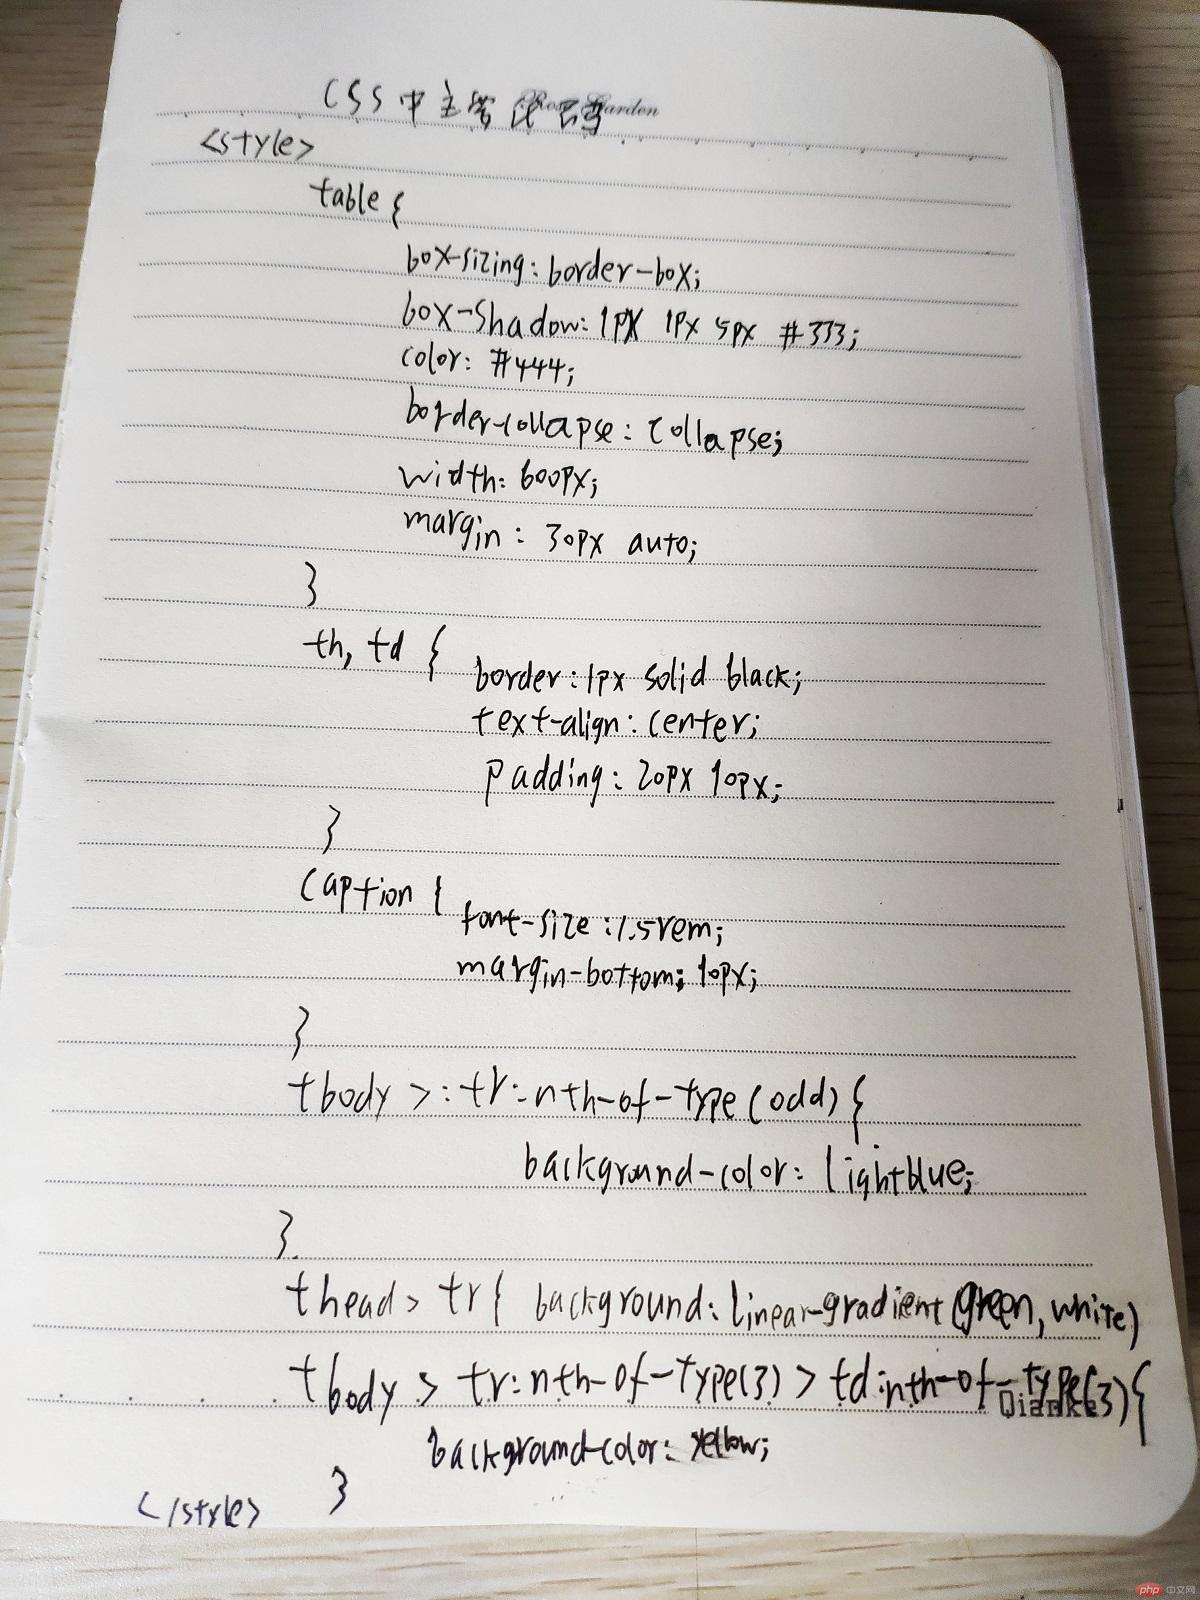 CSS中主要代码
Rose Garden
<style>
table {
box-sizing: border-box;
box-shadow: 1px 1px 5px #333;
color: #444;
border-collapse: collapse;
width: 600px;
margin: 30px auto;
}
th, td {
border: 1px solid black;
text-align: center;
padding: 20px 10px;
}
caption {
font-size: 1.5rem;
margin-bottom: 10px;
}
tbody >: tr:nth-of-type(odd) {
background-color: lightblue;
}
thead > tr { background: linear-gradient(green, white)
tbody > tr:nth-of-type(3) > td:nth-of-type(3) {
background-color: yellow;
}
</style>
php 中文网